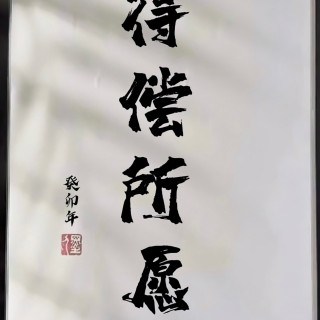 得偿所愿
癸卯年